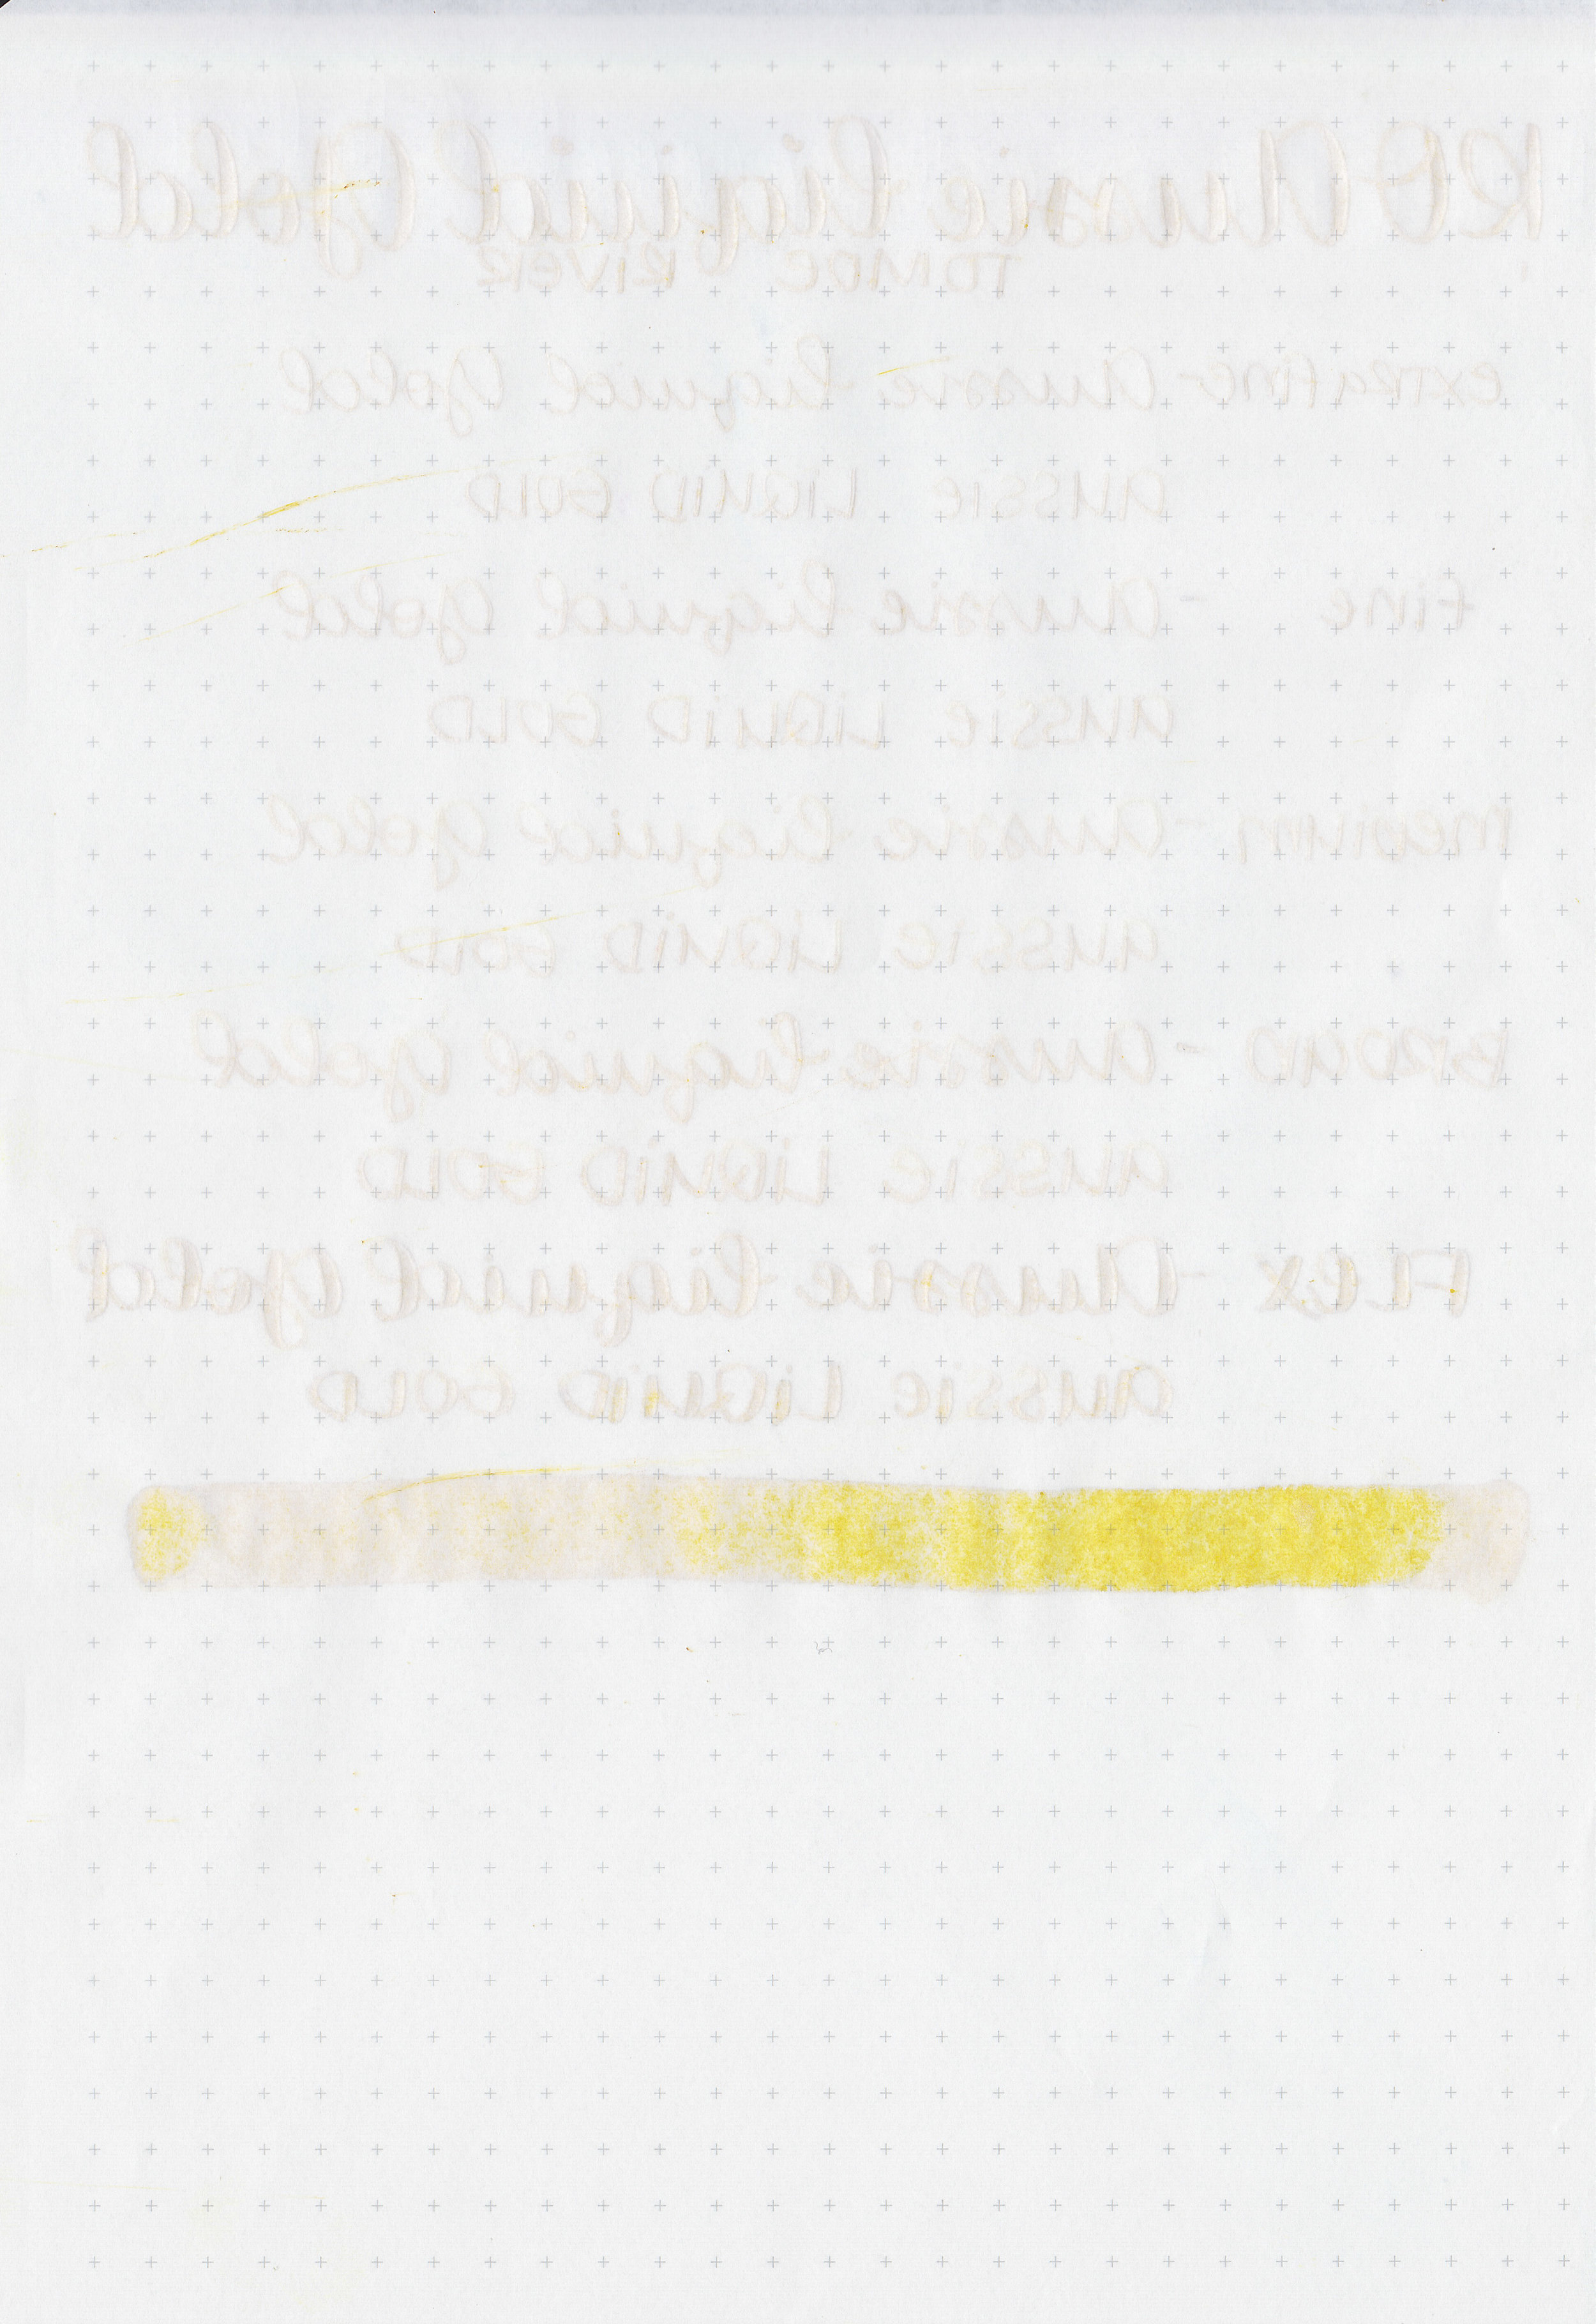 RO Aussie Liquid Gold
TOMOE RIVER
extra fine - Aussie Liquid Gold
AUSSIE LIQUID GOLD
fine - Aussie Liquid Gold
AUSSIE LIQUID GOLD
Medium - Aussie Liquid Gold
AUSSIE LIQUID GOLD
BROAD - Aussie Liquid Gold
AUSSIE LIQUID GOLD
Flex - Aussie Liquid Gold
AUSSIE LIQUID GOLD